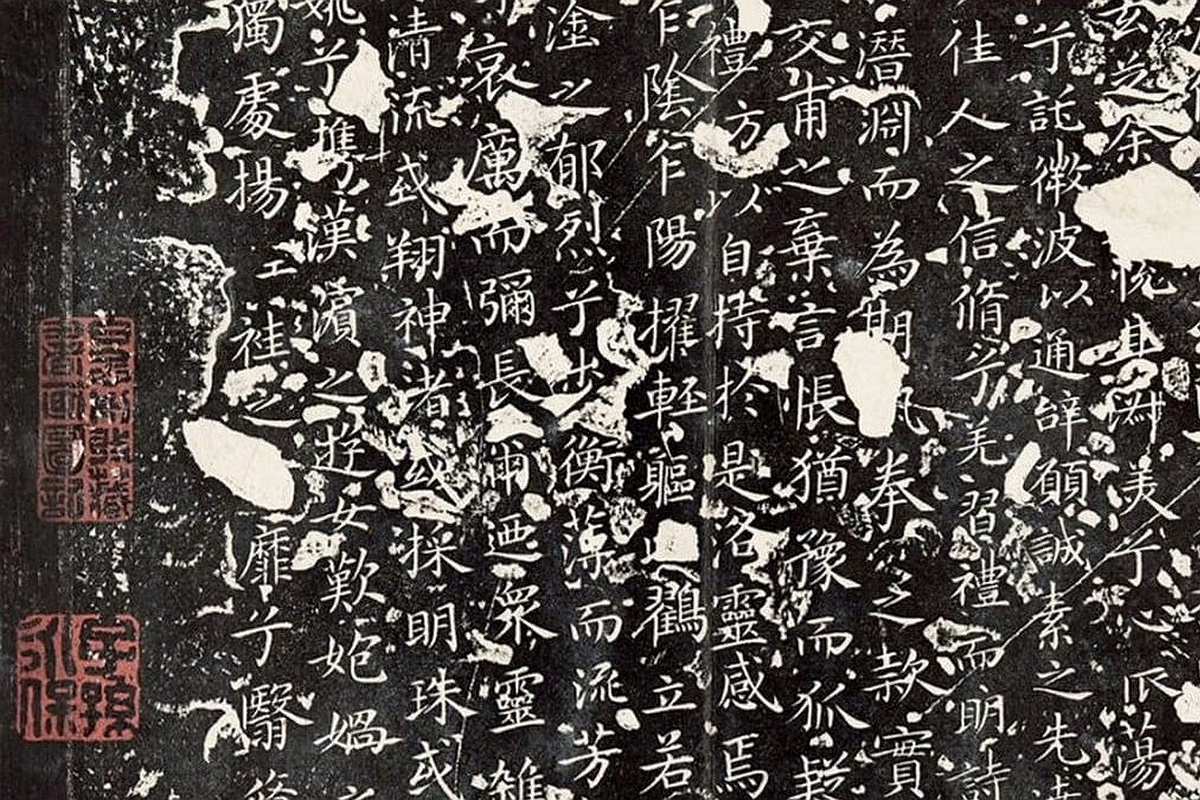 玄芝余悅其淑美兮心振蕩
兮託微波以通辭願誠素之先達
佳人之信脩兮羌習禮而明詩
潛淵而為期執拳之款實
交甫之棄言悵猶豫而狐疑
禮方以自持於是洛靈感焉
乍陰乍陽擢輕軀以鶴立若
塗之郁烈兮步衡薄而流芳
哀厲而彌長爾迺衆靈雜
清流或翔神渚或採明珠或
姚兮攜漢濱之遊女歎匏媧之
獨處揚袿之靡兮翳脩
子孫永保